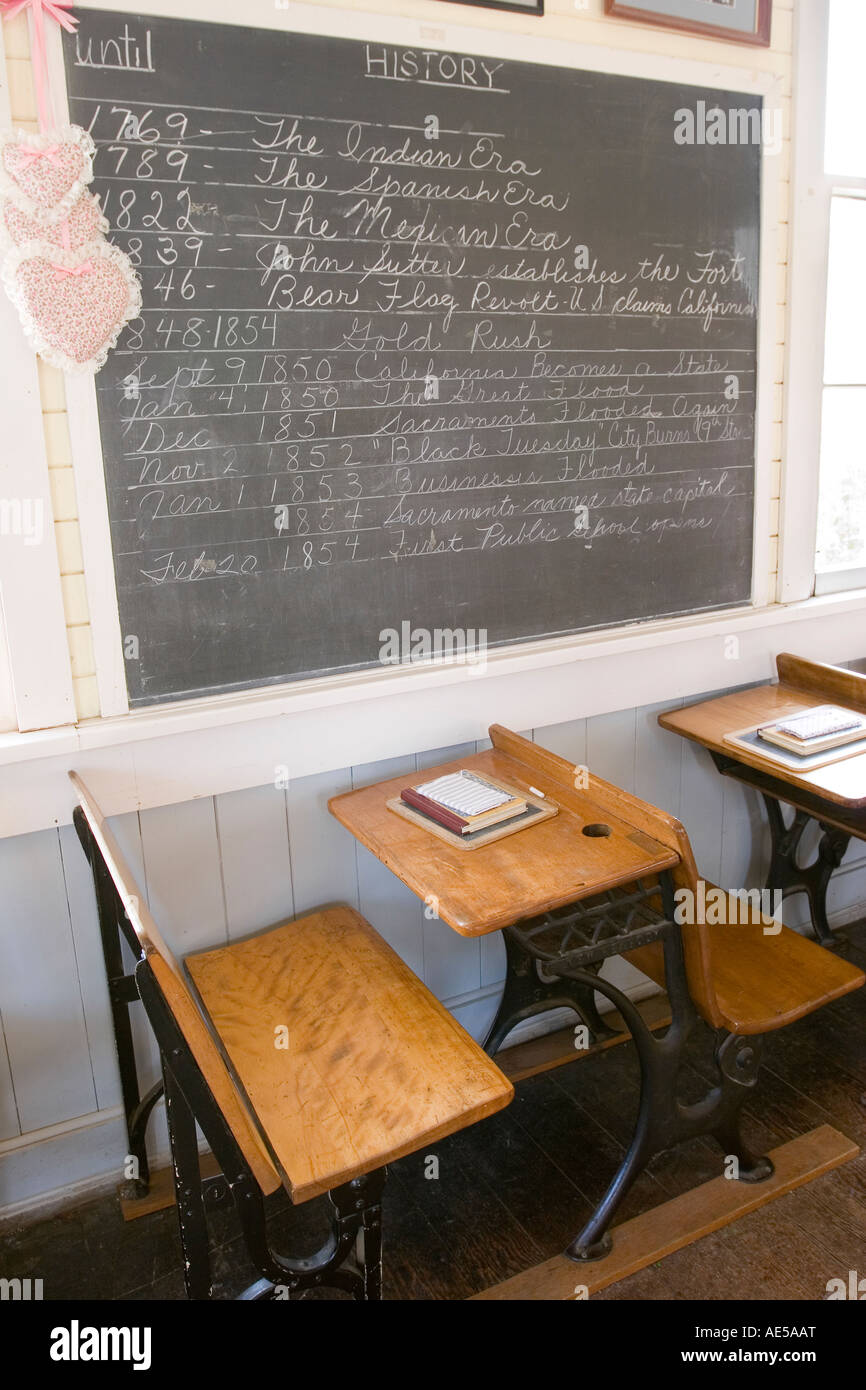 until HISTORY
1769 - The Indian Era
1789 - The Spanish Era
1822 The Mexican Era
1839 - John Sutter establishes the Fort
46 - Bear Flag Revolt - U.S. claims California
848-1854 Gold Rush
Sept 9, 1850 California Becomes a State
Jan 4, 1850 The Great Flood
Dec 1851 Sacramento Flooded Again
Nov 2 1852 "Black Tuesday" City Burns
Jan 1 1853 Business is Flooded
1854 Sacramento named state capital
Feb 20 1854 First Public School opens
alamy
alamy
Image ID: AE5AAT
www.alamy.com